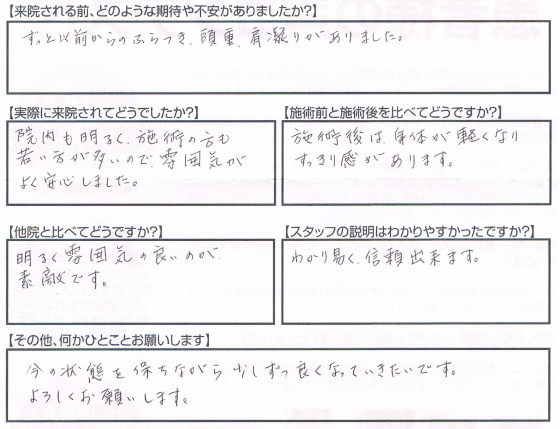 【来院される前、どのような期待や不安がありましたか?】
ずっと以前からのふらつき、頭重、肩凝りがありました。
【実際に来院されてどうでしたか?】
院内も明るく、施術の方も
若い方が多いので、雰囲気が
よく安心しました。
【施術前と施術後を比べてどうですか?】
施術後は、身体が軽くなり
すっきり感があります。
【他院と比べてどうですか?】
明るく雰囲気の良いのが、
素敵です。
【スタッフの説明はわかりやすかったですか?】
わかり易く、信頼出来ます。
【その他、何かひとことお願いします】
今の状態を保ちながら少しずつ良くなっていきたいです。
よろしくお願いします。